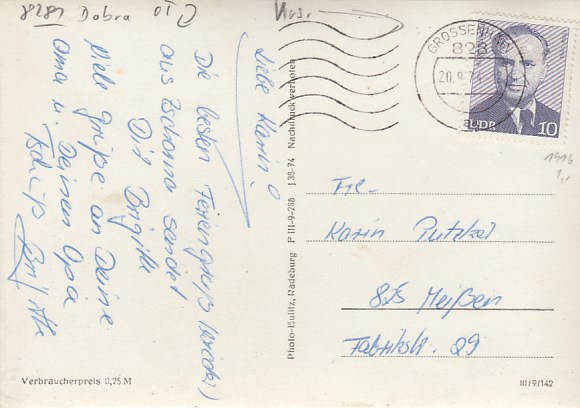 8281 Dobra
Liebe Karin!
Die besten Feriengrüße
aus Zschorna sendet
Dir Brigitte
Viele grüße an Deine
Oma u. Deinen Opa
Tschüß Brigitte
Photo-Eulitz, Radeburg F III-9-286 138-74 Nachdruck verboten
GROSSENHAIN
828
20.8.74
DDR 10
1946
Frl.
Karin
825 Meißen
Fabrikstr. 29
Verbraucherpreis 0,25 M
III/9/142